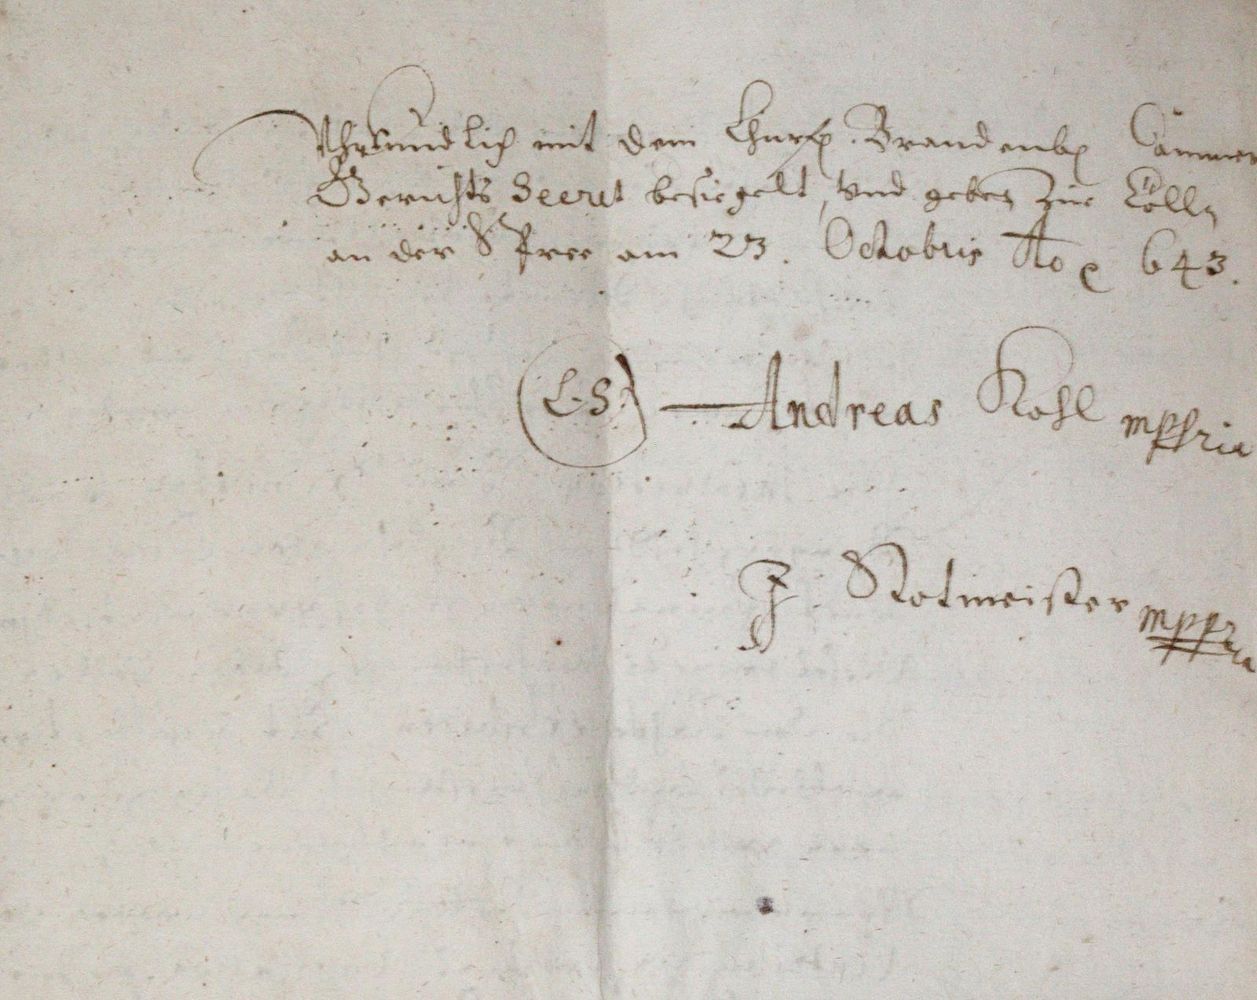 Uhrkundlich mit dem Churfl. Brandenb. Cammer
Gerichts Secret besiegelt, Vnd geben Zue Cölln
an der Spree am 23. Octobris Ao 643.
L. S. Andreas Kohl mppria
J Rotmeister mppria